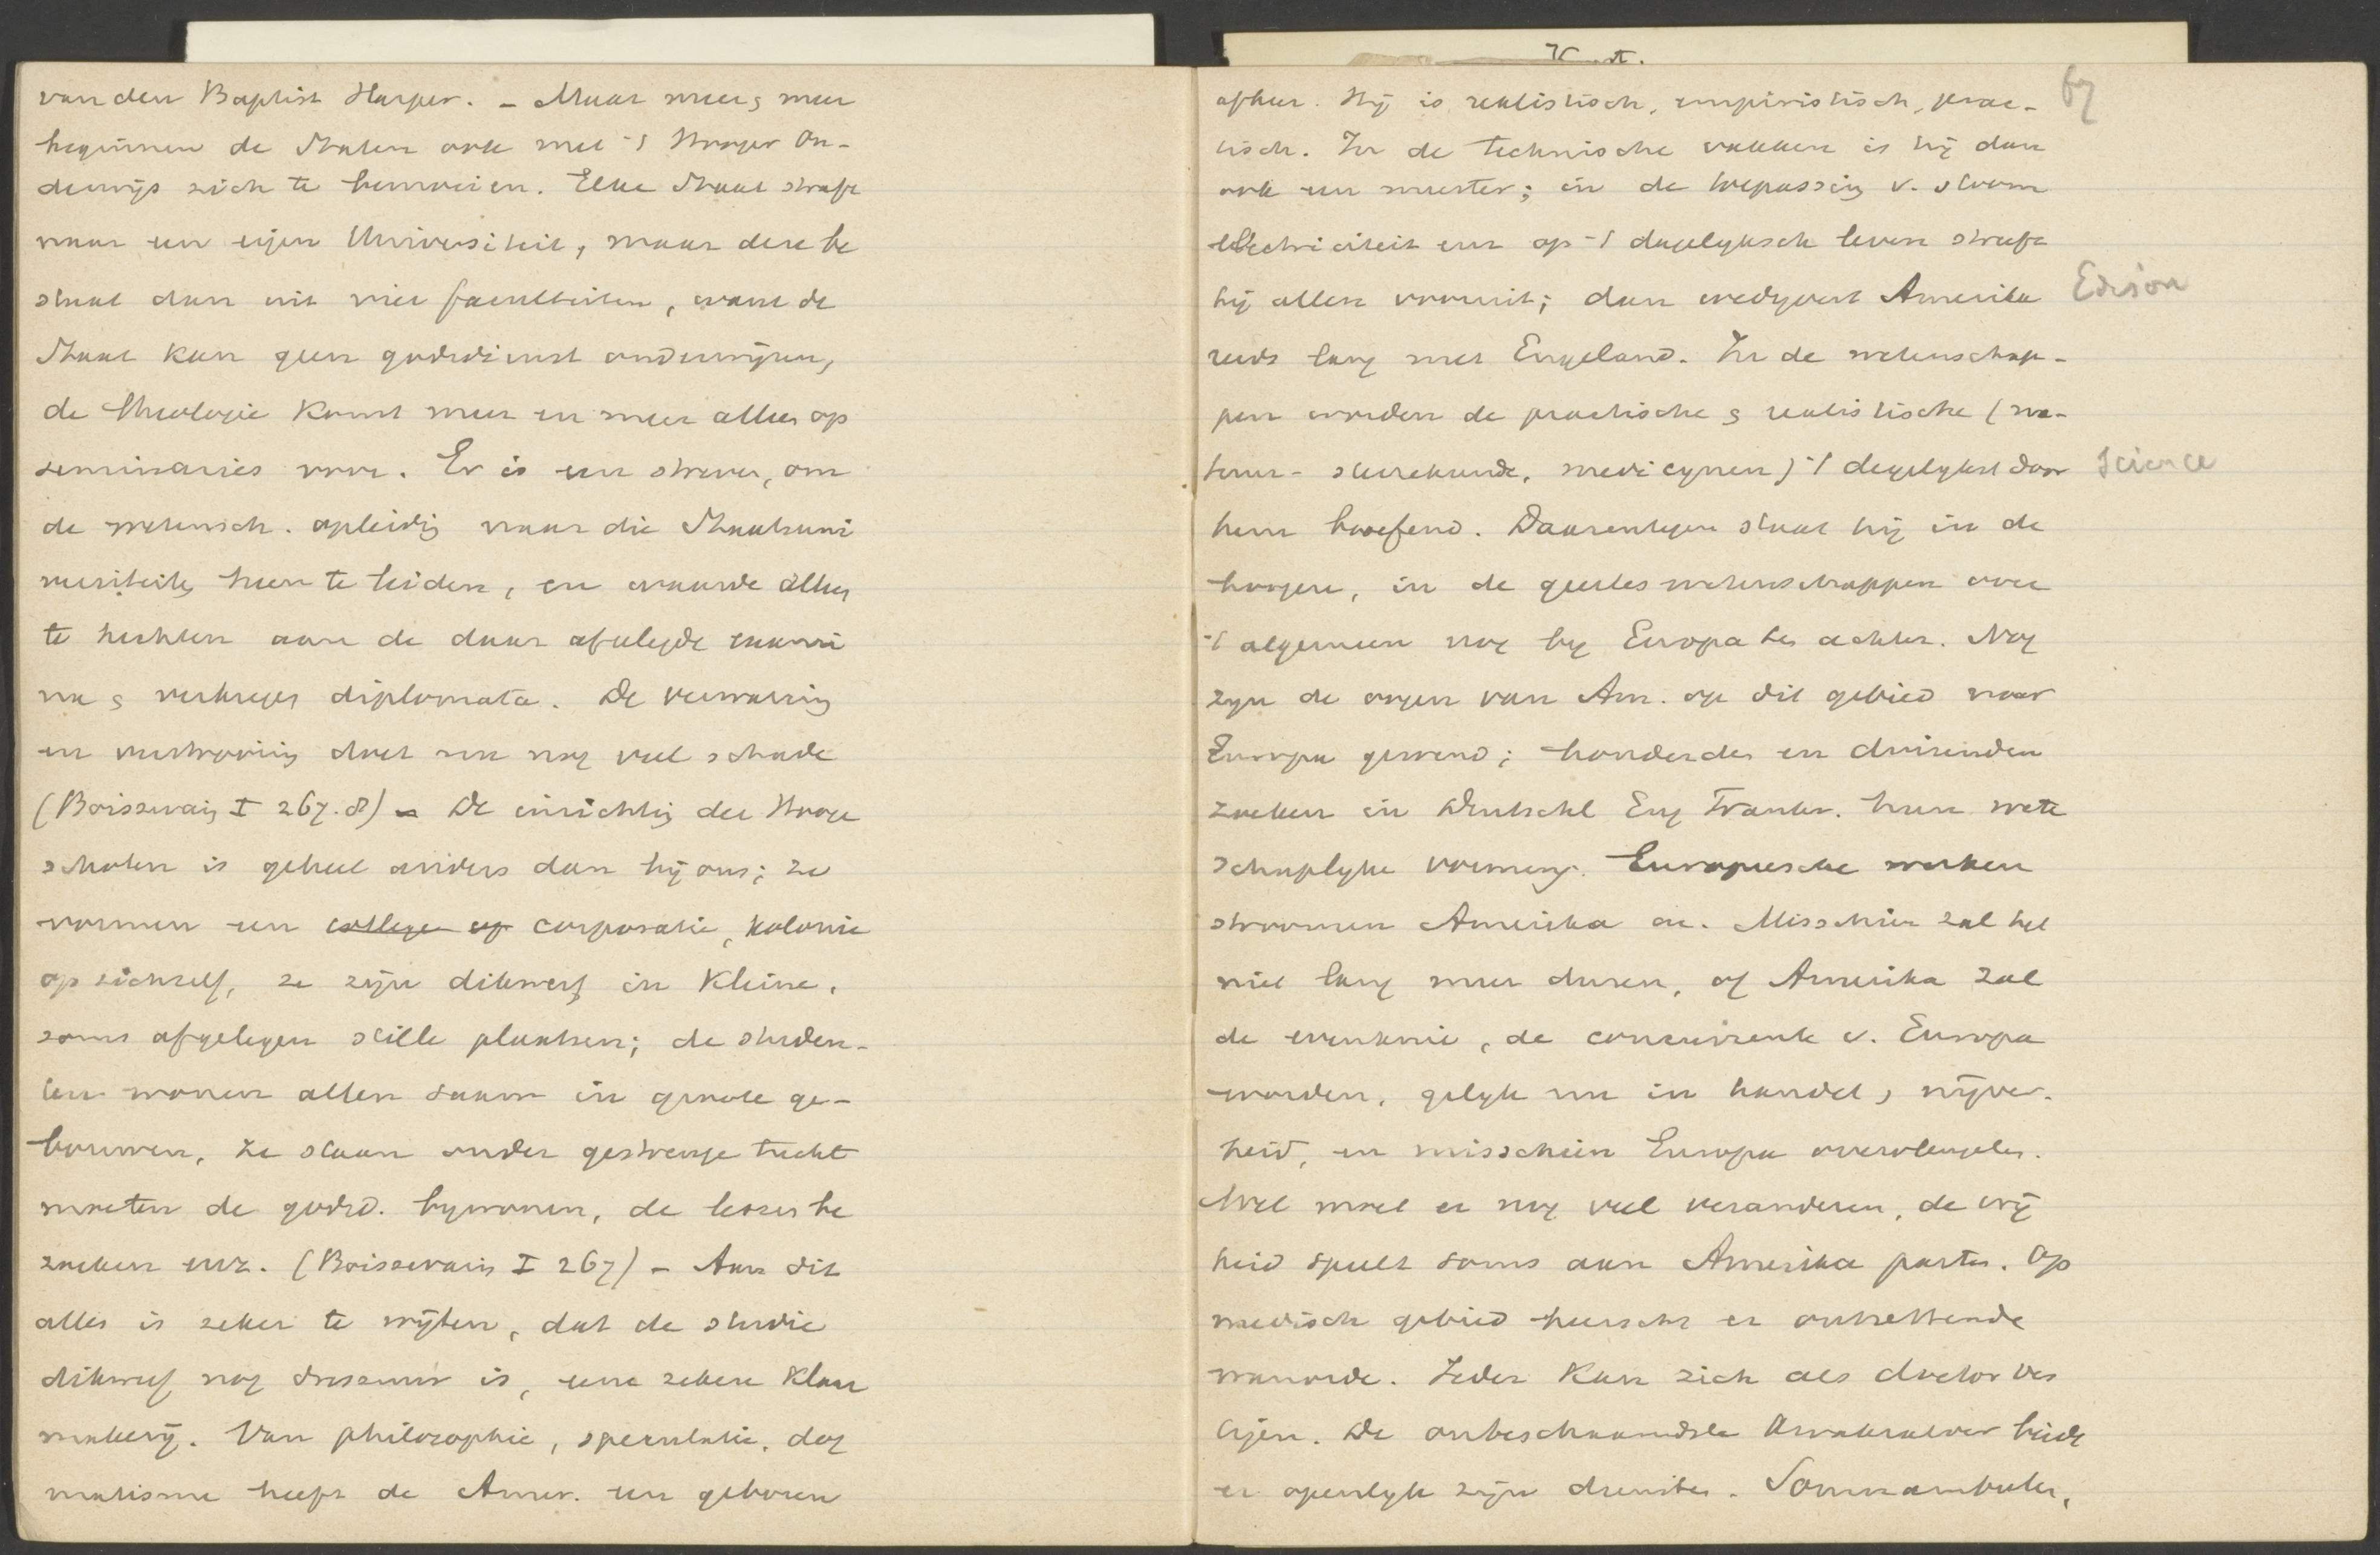 van den Baptist Harper. – Maar meer & meer
beginnen de Staten ook met 't Hooger On-
derwijs zich te bemoeien. Elke Staat streeft
naar een eigen Universiteit, maar deze be
staat dan uit vier faculteiten, want de
Staat kan geen godsdienst onderwijzen,
de theologie komt meer en meer alleen op
seminaries voor. Er is een streven, om
de wetensch. opleiding naar die Staatsuni
versiteiten heen te leiden, en waarde alleen
te hechten aan de daar afgelegde exami
na & verkregen diplomata. De verwarring
en verstrooiing doet nu nog veel schade
(Boissevain I 267.8) – De inrichting der Hooge
scholen is geheel anders dan bij ons; ze
vormen een college of corporatie, kolonie
op zichzelf, ze zijn dikwerf in kleine,
soms afgelegen stille plaatsen; de studen-
ten wonen allen saam in groote ge-
bouwen, ze staan onder gestrenge tucht
moeten de godsd. bywonen, de lessen be
zoeken enz. (Boissevain I 267) – Aan dit
alles is zeker te wijten, dat de studie
dikwerf nog dressuur is, eene zekere klaar
makerij. Van philosophie, speculatie, dog
matisme heeft de Amer. een geboren
K
afkeer. Hij is realistisch, empiristisch, prac-
67
tisch. In de technische vakken is hij dan
ook een meester; in de toepassing v. stoom
electriciteit enz op 't dagelyksch leven streeft
hij allen vooruit; dan wedyvert Amerika
Edison
reeds lang met Engeland. In de wetenschap-
pen worden de practische & realistische (na-
tuur- sterrekunde, medicynen) 't degelykst door
Science
hem beoefend. Daarentegen staat hij in de
hoogere, in de geesteswetenschappen over
't algemeen nog by Europa ten achter. Nog
zyn de oogen van Am. op dit gebied naar
Europa gewend; honderden en duizenden
zoeken in Duitschl Eng Frankr. hun weten
schaplyke vorming. Europeesche werken
stroomen Amerika in. Misschien zal het
niet lang meer duren, of Amerika zal
de evenknie, de concurrente v. Europa
worden, gelyk nu in handel, nijver-
heid, en misschien Europa overvleugelen.
Wel moet er nog veel veranderen, de vrij
heid speelt soms aan Amerika parten. Op
medisch gebied heerscht er ontzettende
wanorde. Ieder kan zich als doctor ves
tigen. De onbeschaamdste kwakzalver biedt
er openlyk zijn diensten. Somnambulen,